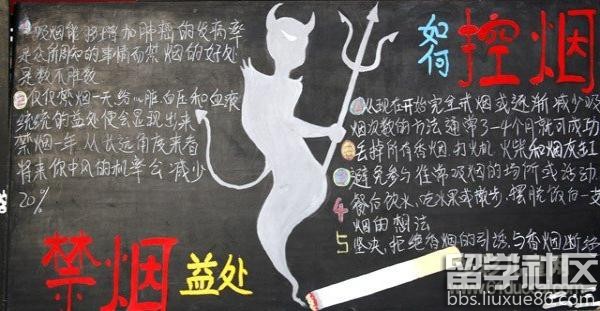 吸烟能够增加肺癌的发病率
是众所周知的事情而禁烟的好处
更数不胜数
仅仅禁烟一天给心脏,血压和血液
统统的益处便会显现出来
禁烟一年,从长远角度来看
将来你中风的机率会减少
20%
禁烟
益处
如何
控烟
从现在开始完全戒烟或逐渐减少吸
烟次数的方法通常3-4个月就可成功
丢掉所有香烟.打火机、火柴和烟灰缸
避免参与往常吸烟的场所或活动.
4 餐后饮水、吃水果或散步,摆脱饭后一支
烟的想法
5 坚决拒绝香烟的引诱,与香烟断
留学社区
bbs.liuxue86.com